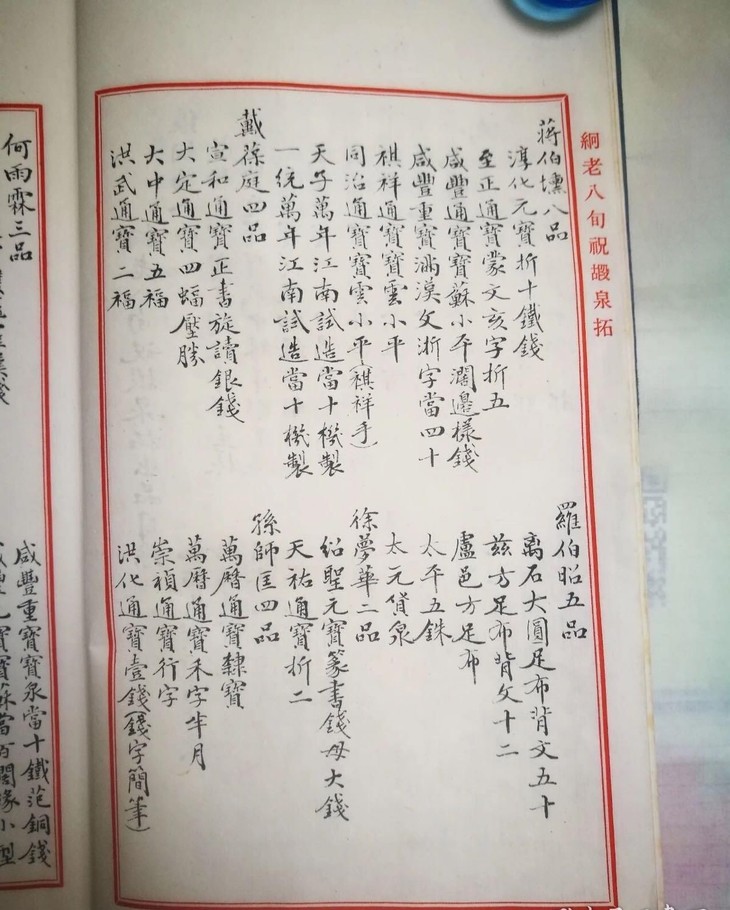 絅老八旬祝嘏泉拓
蔣伯壎八品
淳化元寶折十鐵錢
至正通寶蒙文亥字折五
咸豐通寶寶蘇小平濶邊樣錢
咸豐重寶滿漢文浙字當四十
祺祥通寶寶雲小平
同治通寶寶雲小平(祺祥手)
天子萬年江南試造當十機製
一統萬年江南試造當十機製
戴葆庭四品
宣和通寶正書旋讀銀錢
大定通寶四蝠壓勝
大中通寶五福
洪武通寶二福
羅伯昭五品
离石大圓足布背文五十
茲方足布背文十二
盧邑方足布
太平五銖
太元貨泉
徐夢華二品
紹聖元寶篆書錢母大錢
天祐通寶折二
孫師匡四品
萬曆通寶隸寶
萬曆通寶禾字半月
崇禎通寶行字
洪化通寶壹錢(錢字簡筆)
何雨霖三品
咸豐重寶寶泉當十鐵范銅錢
咸豐元寶寶蘇當百闊緣小型